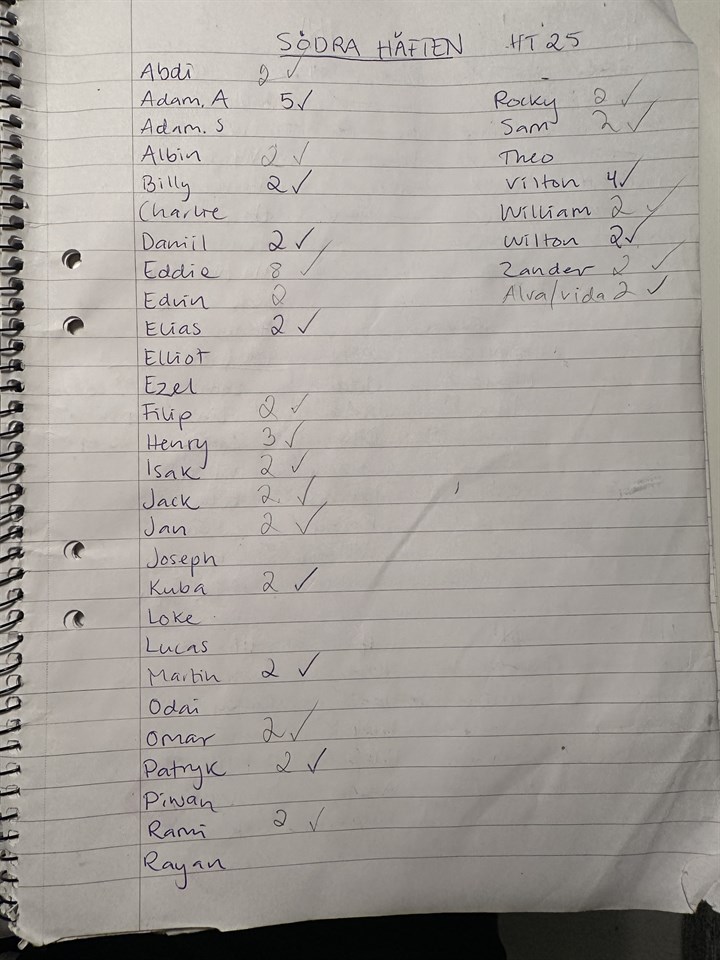 SÖDRA HÄFTEN HT 25
Abdi 2 ✓
Adam. A 5 ✓
Adam. S
Albin 2 ✓
Billy 2 ✓
Charlie
Daniil 2 ✓
Eddie 8 ✓
Edvin 2
Elias 2 ✓
Elliot
Ezel
Filip 2 ✓
Henry 3 ✓
Isak 2 ✓
Jack 2 ✓
Jan 2 ✓
Joseph
Kuba 2 ✓
Loke
Lucas
Martin 2 ✓
Odai
Omar 2 ✓
Patryk 2 ✓
Piwan
Rami 2 ✓
Rayan
Rocky 2 ✓
Sam 2 ✓
Theo
Vilton 4 ✓
William 2 ✓
Wilton 2 ✓
Zander 2 ✓
Alva/vida 2 ✓